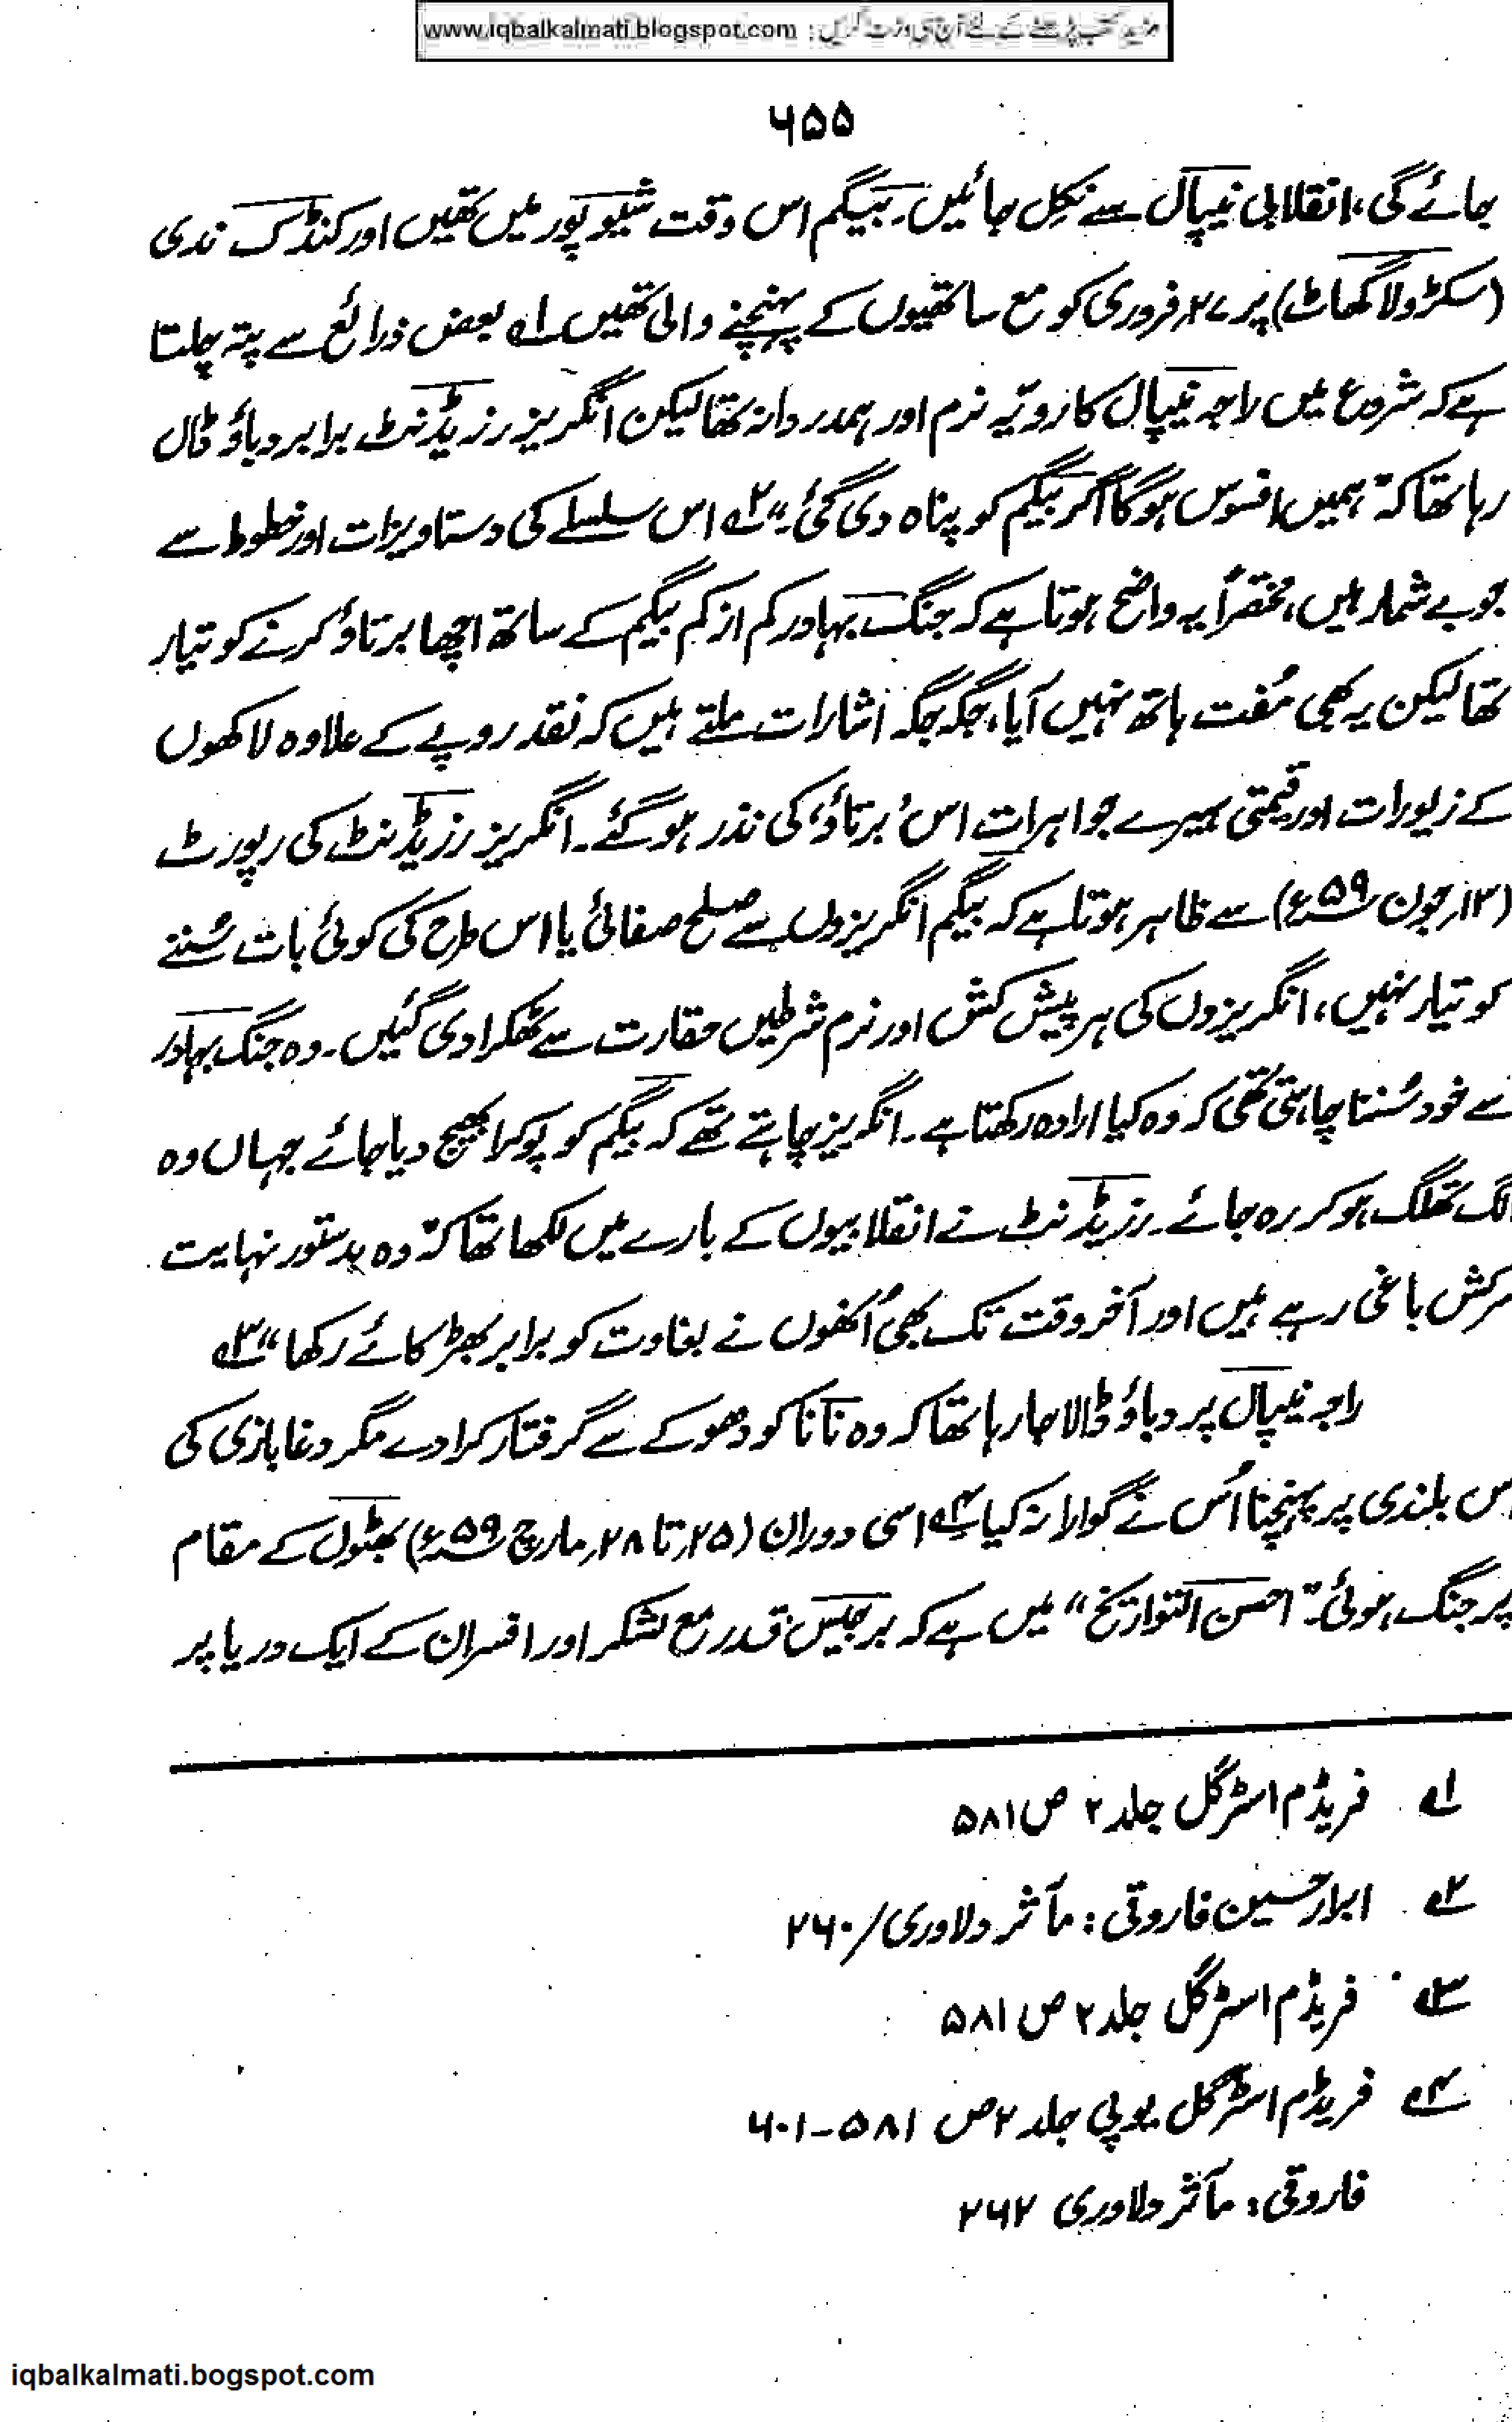 www.iqbalkalmati.blogspot.com : مزید کتب پڑھنے کے لئے آج ہی وزٹ کریں
۶۵۵
جائے گی، انقلابی نیپال سے نکل جائیں۔ بیگم اس وقت شیوپور میں تھیں اور کنڈک ندی
(سکڑولا گھاٹ) پر ۲۷؍فروری کو مع ساتھیوں کے پہنچنے والی تھیں۔؂۱ بعض ذرائع سے پتہ چلتا
ہے کہ شروع میں راجہ نیپال کا رویّہ نرم اور ہمدردانہ تھا لیکن انگریز رزیڈنٹ برابر دباؤ ڈال
رہا تھا کہ "ہمیں افسوس ہوگا اگر بیگم کو پناہ دی گئی۔"؂۲ اس سلسلے کی دستاویزات اور خطوط سے
جو بے شمار ہیں، مختصراً یہ واضح ہوتا ہے کہ جنگ بہادر کم از کم بیگم کے ساتھ اچھا برتاؤ کرنے کو تیار
تھا لیکن یہ بھی مُفت ہاتھ نہیں آیا، جگہ جگہ اشارات ملتے ہیں کہ نقد روپے کے علاوہ لاکھوں
کے زیورات اور قیمتی ہیرے جواہرات اس 'برتاؤ' کی نذر ہوگئے۔ انگریز رزیڈنٹ کی رپورٹ
(۱۳؍جون ۵۹ء) سے ظاہر ہوتا ہے کہ بیگم انگریزوں سے صلح صفائی یا اس طرح کی کوئی بات سُننے
کو تیار نہیں، انگریزوں کی ہر پیش کش اور نرم شرطیں حقارت سے ٹھکرا دی گئیں۔ وہ جنگ بہادر
سے خود سُننا چاہتی تھی کہ وہ کیا ارادہ رکھتا ہے۔ انگریز چاہتے تھے کہ بیگم کو پوکرا بھیج دیا جائے جہاں وہ
الگ تھلگ ہوکر رہ جائے۔ رزیڈنٹ نے انقلابیوں کے بارے میں لکھا تھا کہ "وہ بدستور نہایت
سرکش باغی رہے ہیں اور آخر وقت تک بھی اُنھوں نے بغاوت کو برابر بھڑکائے رکھا"؂۳
راجہ نیپال پر دباؤ ڈالا جارہا تھا کہ وہ نانا کو دھوکے سے گرفتار کرادے مگر دغابازی کی
اس بلندی پر پہنچنا اُس نے گوارا نہ کیا۔؂۴ اسی دوران (۲۵؍ تا ۲۸؍مارچ ۵۹ء) بھٹول کے مقام
پر جنگ ہوئی۔ "احسن التواریخ" میں ہے کہ برجیس قدر مع لشکر اور افسران کے ایک دریا پر
؂۱ فریڈم اسٹرگل جلد ۲ ص ۵۸۱
؂۲ ابرار حسین فاروقی : مآثر دلاوری / ۲۶۰
؂۳ فریڈم اسٹرگل جلد ۲ ص ۵۸۱
؂۴ فریڈم اسٹرگل یوپی جلد ۲ ص ۵۸۱-۶۰۱
فاروقی : مآثر دلاوری ۲۶۲
iqbalkalmati.bogspot.com